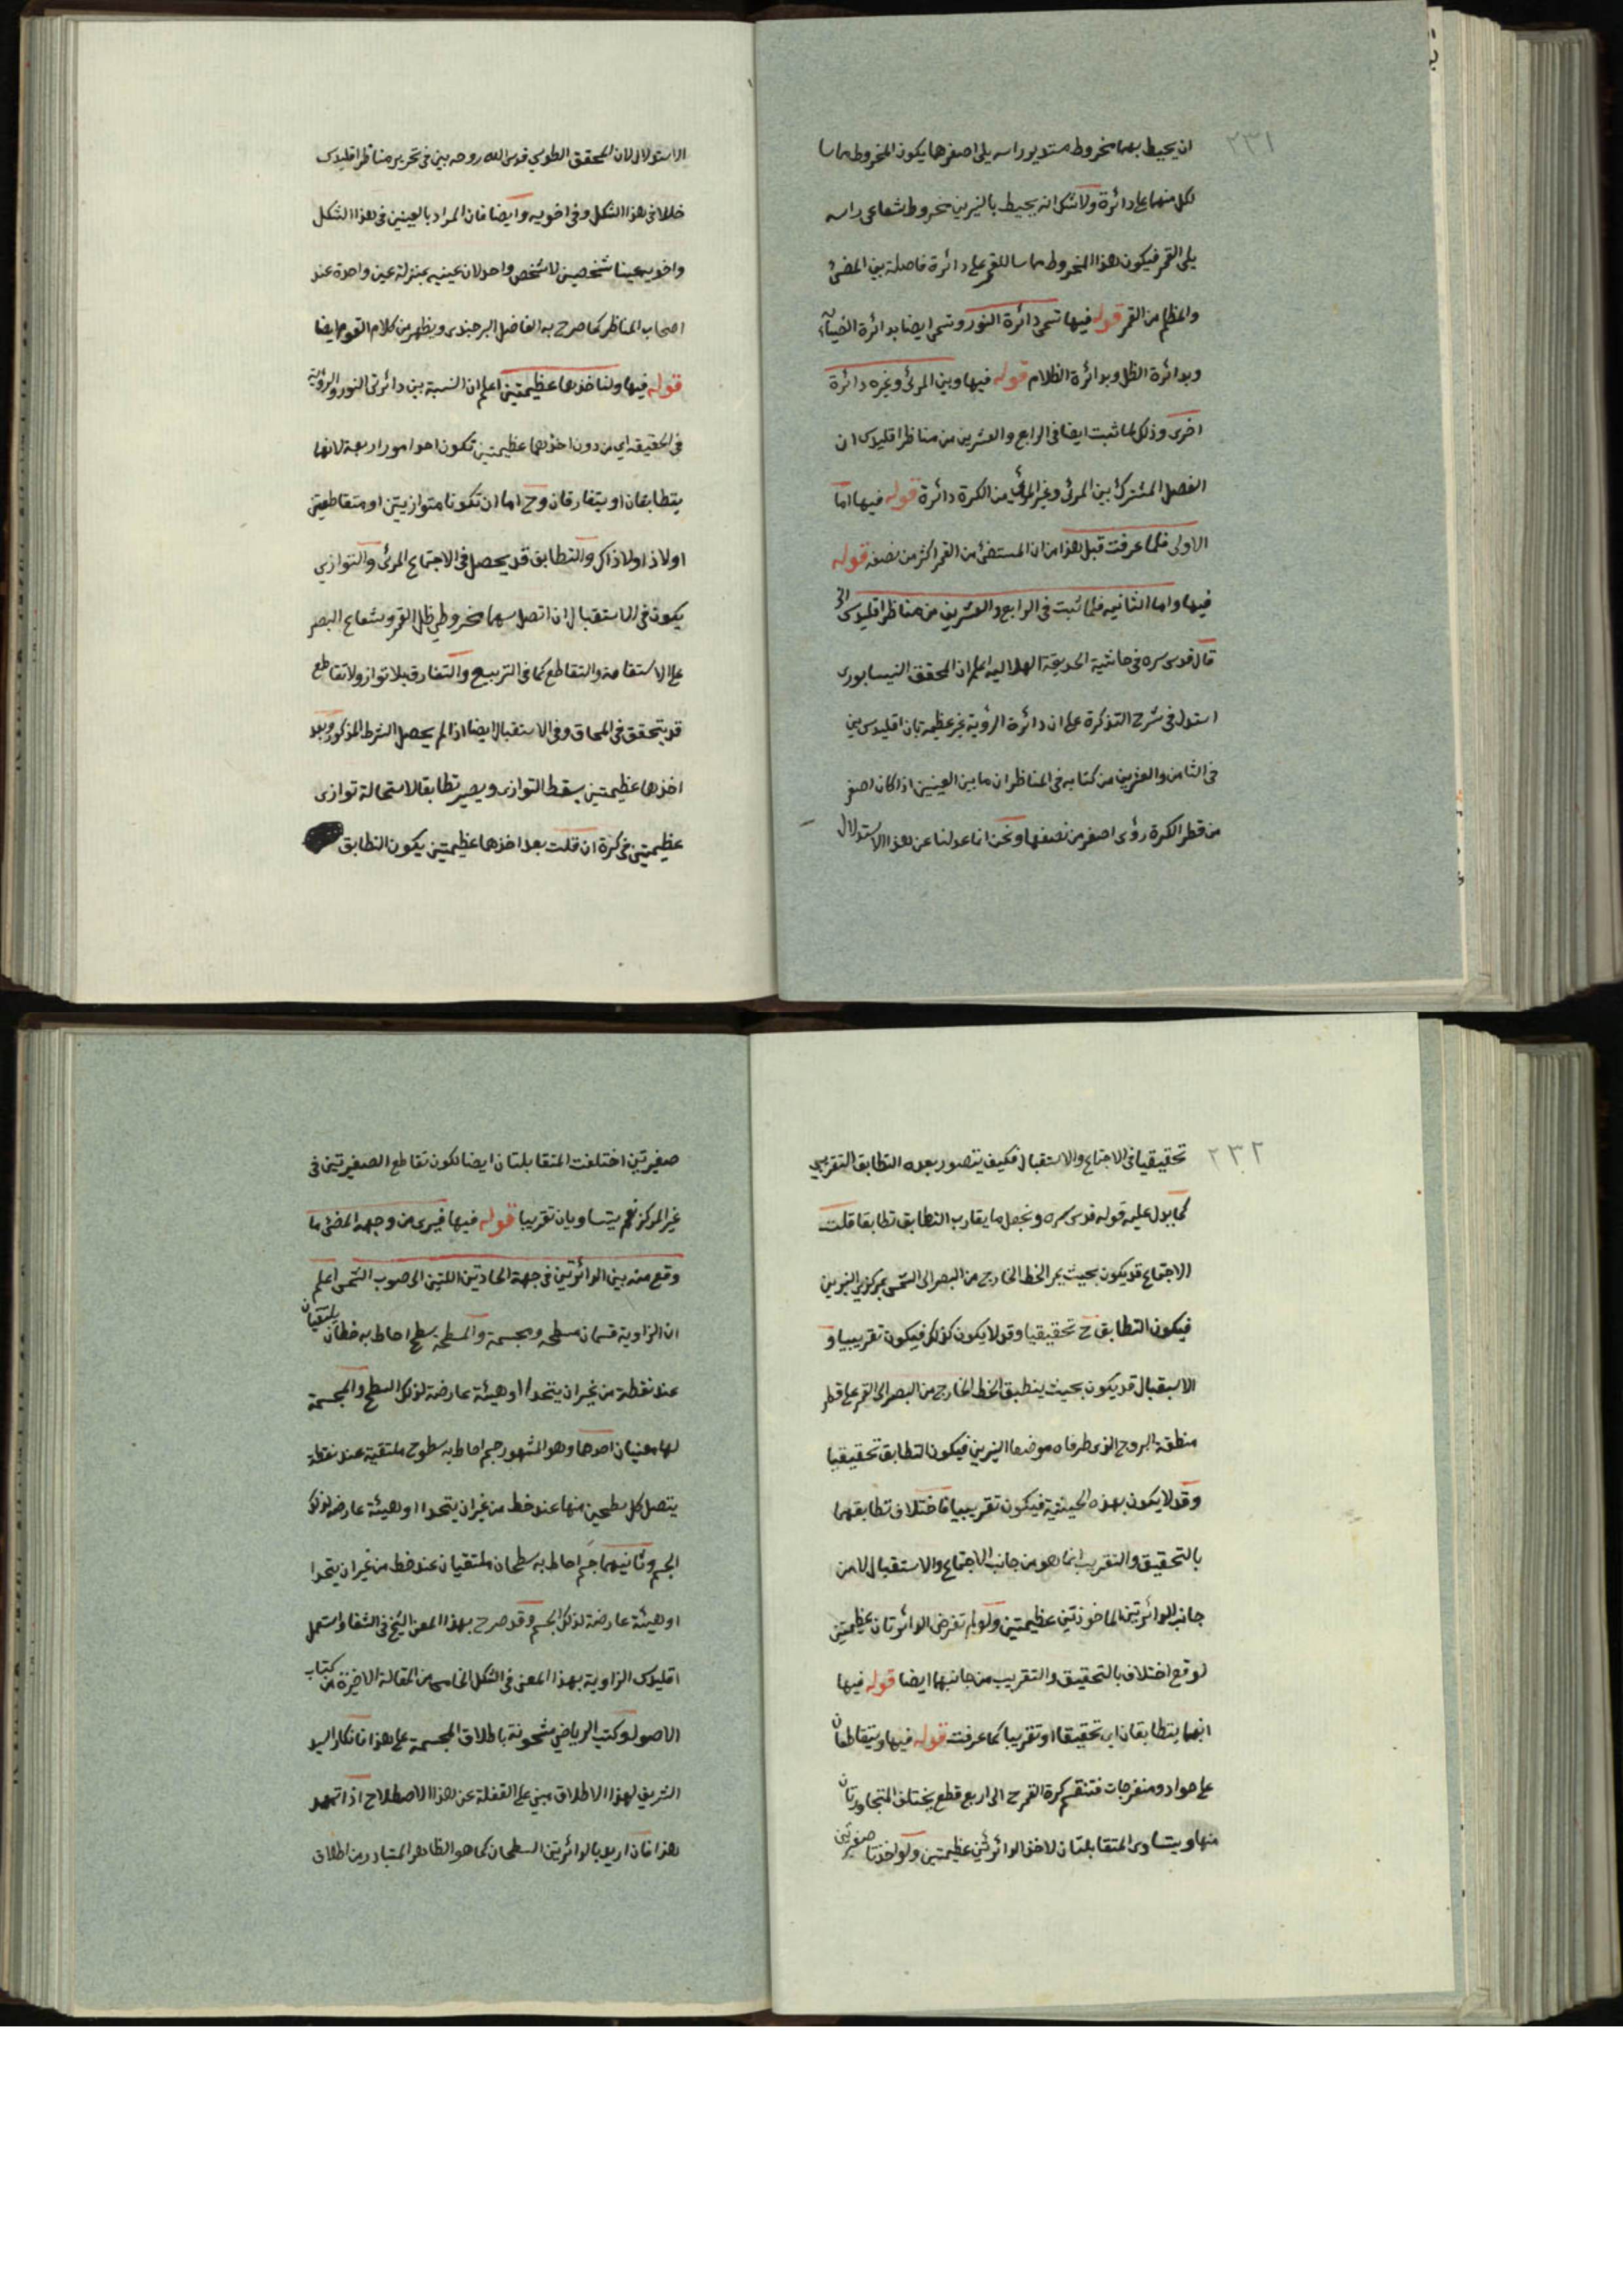 ٢٣١
ان يحيط بهما مخروط مستدير راسه يلى اصغرهما يكون المخروط مماسا
لكل منهما على دائرة ولاشك انه يحيط بالنيرين مخروط شعاعى راسه
يلى القمر فيكون هذا المخروط مماسا للقمر على دائرة فاصلة بين المضئ
والمظلم من القمر قوله فيها تسمى دائرة النور وتسمى ايضا بدائرة الضياء
وبدائرة الظل وبدائرة الظلام قوله فيها وبين المرئى وغيره دائرة
اخرى وذلك لما ثبت ايضا فى الرابع والعشرين من مناظر اقليدس ان
الفصل المشترك بين المرئى وغير المرئى من الكرة دائرة قوله فيها اما
الاولى فلما عرفت قبل هذا من ان المستضئ من القمر اكثر من نصفه قوله
فيها واما الثانية فلما ثبت فى الرابع والعشرين من مناظر اقليدس الخ
قال قدس سره فى حاشية الحديقة الهلالية اعلم ان المحقق النيسابورى
استدل فى شرح التذكرة على ان دائرة الرؤية غير عظيمة بان اقليدس بين
فى الثامن والعشرين من كتابه فى المناظر ان ما بين العينين اذا كان اصغر
من قطر الكرة رؤى اصغر من نصفها ونحن انما عدلنا عن هذا الاستدلال
الاستدلال لان المحقق الطوسي قدس الله روحه بين فى تحرير مناظر اقليدس
خللا فى هذا الشكل وفى اخويه وايضا فان المراد بالعينين فى هذا الشكل
واخويه عينا شخصين لا شخص واحد لان عينيه بمنزلة عين واحدة عند
اصحاب المناظر كما صرح به الفاضل البرجندى ويظهر من كلام القوم ايضا
قوله فيها ولناخذهما عظيمتين اعلم ان النسبة بين دائرتى النور والرؤية
فى الحقيقة اي من دون اخذهما عظيمتين تكون احد امور اربعة لانهما
يتطابقان او يتفارقان وح اما ان تكونا متوازيتين او متقاطعتين
اولا ذا ولا ذاك والتطابق قد يحصل فى الاجتماع المرئى والتوازى
يكون فى الاستقبال ان اتصل سهما مخروطي ظل القمر وشعاع البصر
على الاستقامة والتقاطع كما فى التربيع والتفارق بلا تواز ولا تقاطع
قد يتحقق فى المحاق وفى الاستقبال ايضا اذا لم يحصل الشرط المذكور وبعد
اخذهما عظيمتين يسقط التوازى ويصير تطابقا لاستحالة توازى
عظيمتين فى كرة ان قلت بعد اخذهما عظيمتين يكون التطابق
٢٣٢
تحقيقيا فى الاجتماع والاستقبال فكيف يتصور بعده التطابق التقريبى
كما يدل عليه قوله قدس سره ونجعل ما يقارب التطابق تطابقا قلت
الاجتماع قد يكون بحيث يمر الخط الخارج من البصر الى الشمس بمركزي النيرين
فيكون التطابق ح تحقيقيا وقد لا يكون كذلك فيكون تقريبيا و
الاستقبال قد يكون بحيث ينطبق الخط الخارج من البصر الى القمر على قطر
منطقة البروج الذى طرفاه موضعا النيرين فيكون التطابق تحقيقيا
وقد لا يكون بهذه الحيثية فيكون تقريبيا فاختلاف تطابقهما
بالتحقيق والتقريب انما هو من جانب الاجتماع والاستقبال لا من
جانب الدائرتين الماخوذتين عظيمتين ولو لم تفرض الدائرتان عظيمتين
لوقع اختلاف بالتحقيق والتقريب من جانبهما ايضا قوله فيها
انهما يتطابقان اى تحقيقا او تقريبا كما عرفت قوله فيها ويتقاطعان
على حواد ومنفرجات فتنقسم كرة القمر ح الى اربع قطع يختلف المتجاورتان
منها ويتساوى المتقابلتان لاخذ الدائرتين عظيمتين ولو اخذتا صغيرتين
صغيرتين اختلفت المتقابلتان ايضا لكون تقاطع الصغيرتين فى
غير المركز نعم يتساويان تقريبا قوله فيها فيرى من وجهه المضئ ما
وقع منه بين الدائرتين فى جهة الحادتين اللتين الى صوب الشمس اعلم
ان الزاوية قسمان مسطحة ومجسمة والمسطحة سطح احاط به خطان يلتقيان
عند نقطة من غير ان يتحدا او هيئة عارضة لذلك السطح والمجسمة
لها معنيان احدهما وهو المشهور جسم احاط به سطوح ملتقية عند نقطة
يتصل كل سطحين منها عند خط من غير ان يتحدا او هيئة عارضة لذلك
الجسم وثانيهما جسم احاط به سطحان ملتقيان عند خط من غير ان يتحدا
او هيئة عارضة لذلك الجسم وقد صرح بهذا المعنى الشيخ فى الشفا واستعمل
اقليدس الزاوية بهذا المعنى فى الشكل الخامس من المقالة الاخيرة من كتاب
الاصول وكتب الرياضي مشحونة باطلاق المجسمة على هذا فانكار السيد
الشريف لهذا الاطلاق مبني على الغفلة عن هذا الاصطلاح اذا تمهد
هذا فان اريد بالدائرتين السطحان كما هو الظاهر المتبادر من اطلاق